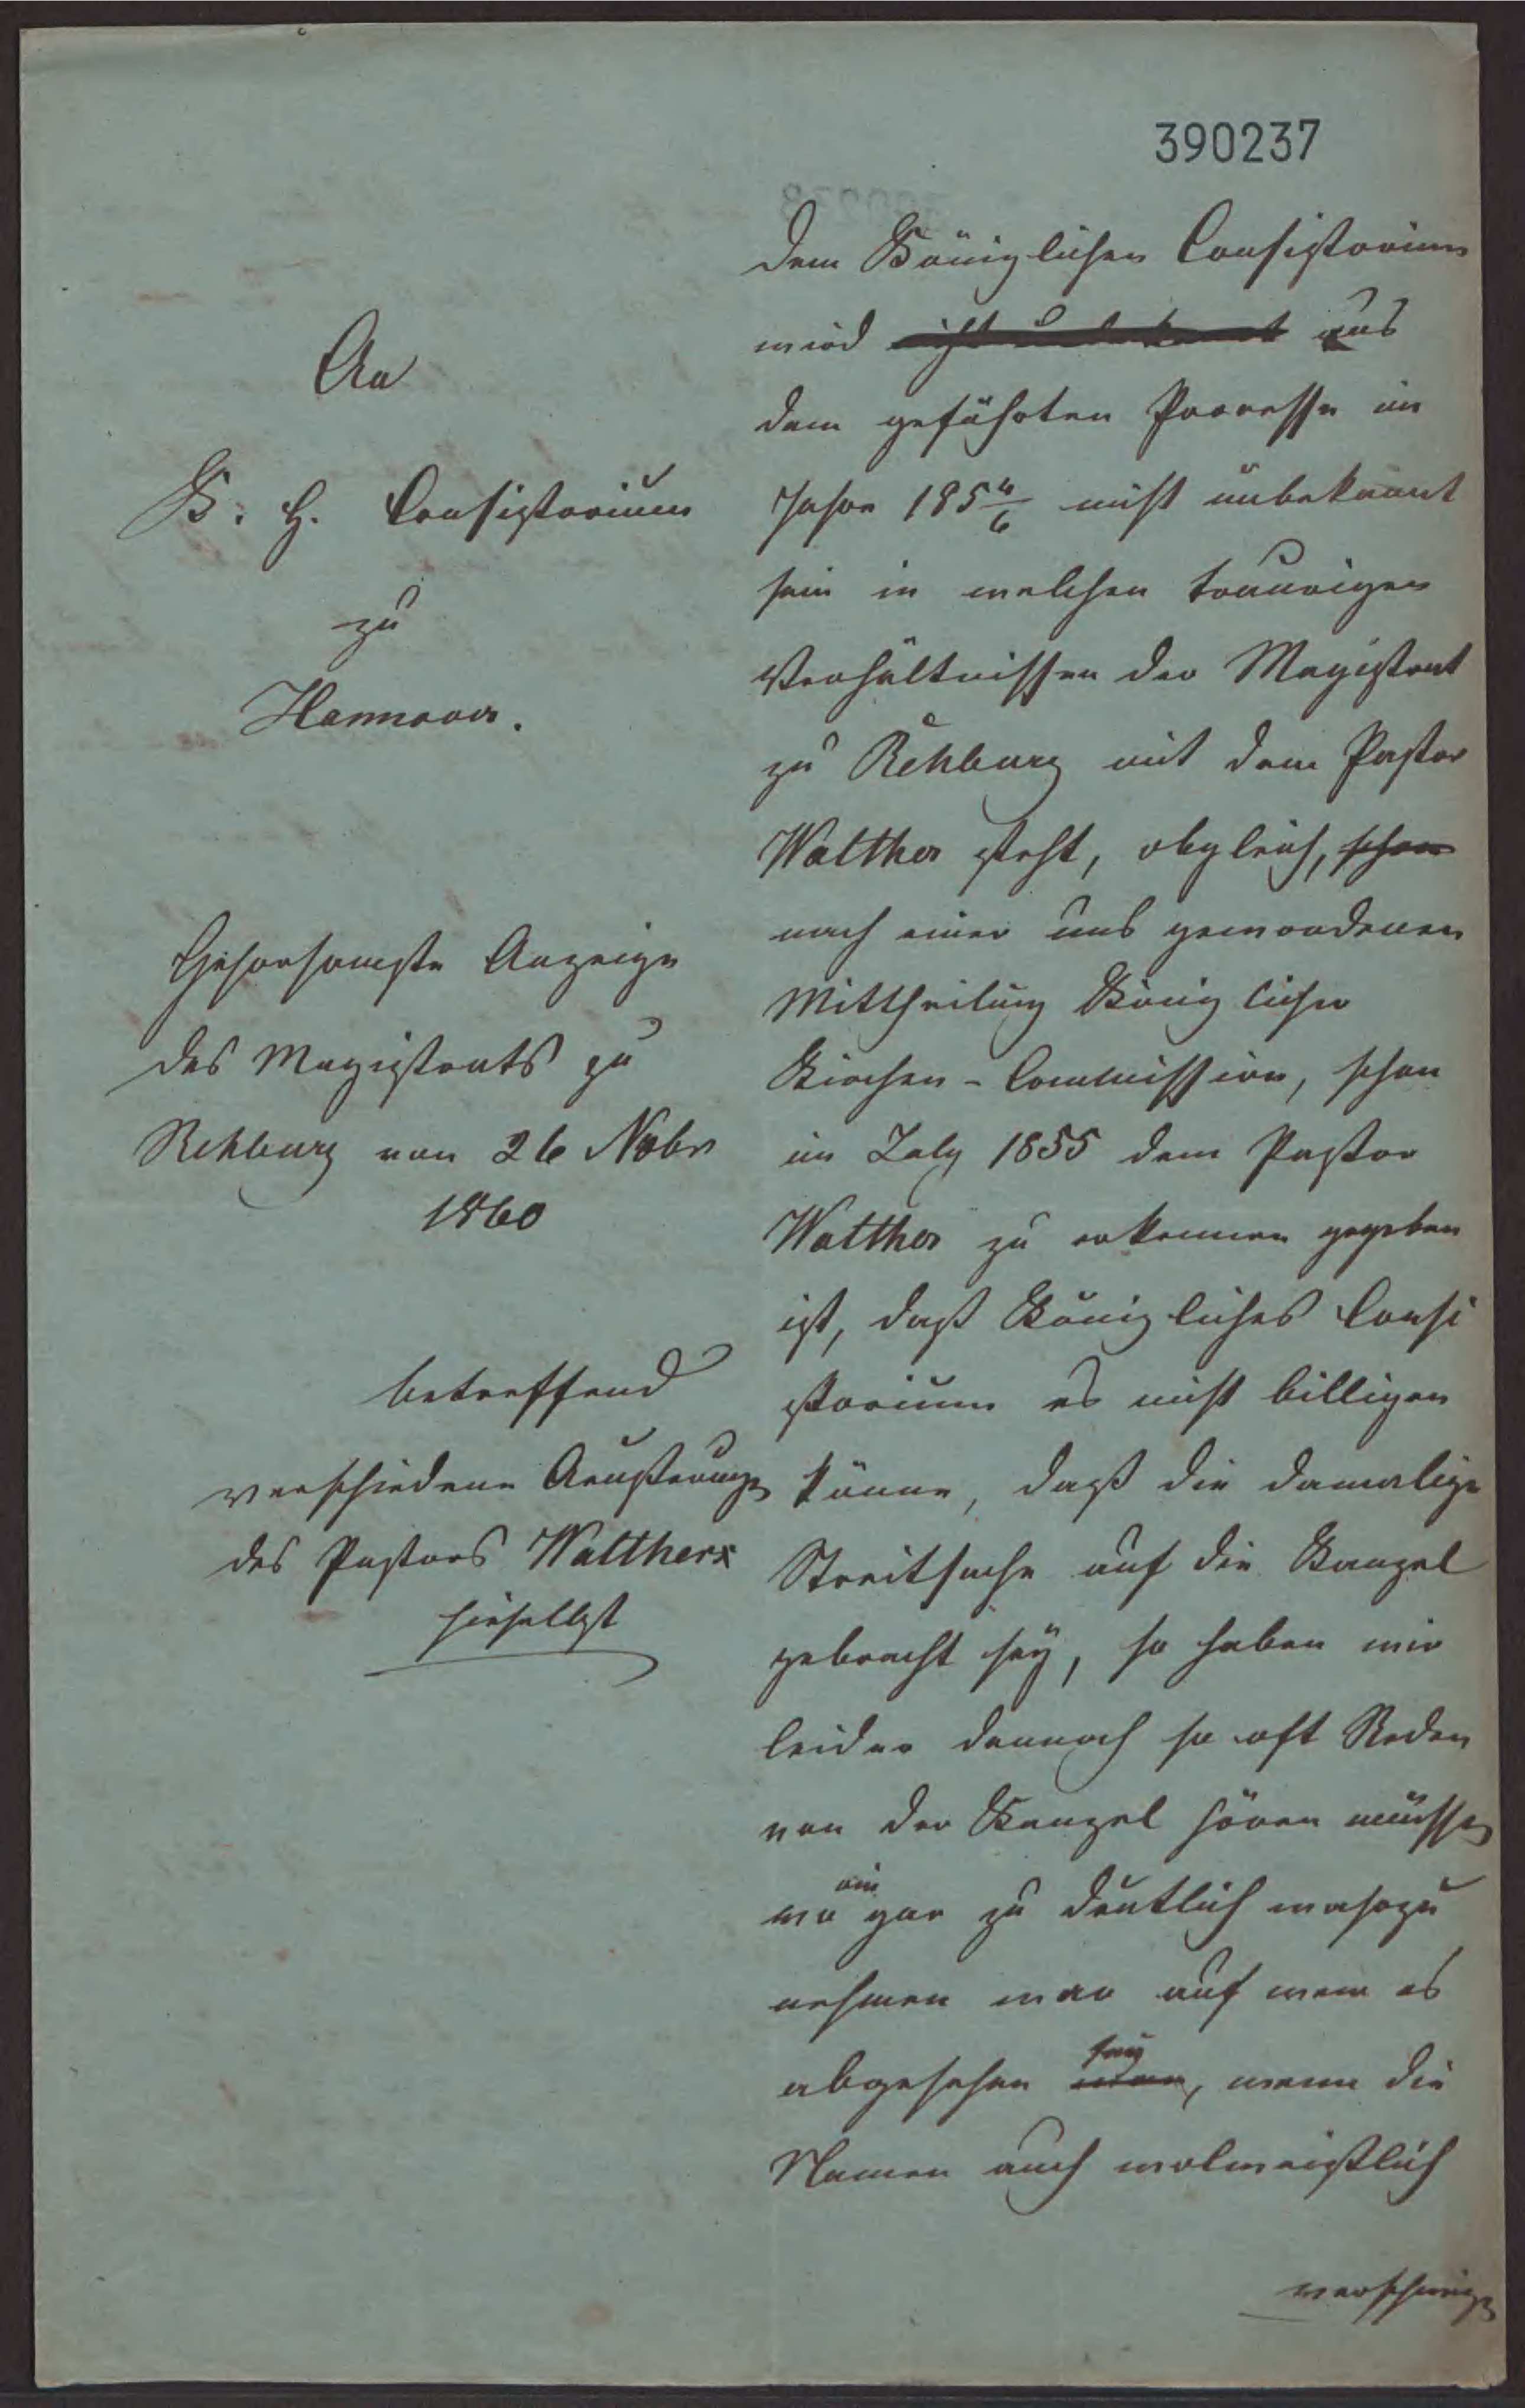 390237
An
K. H. Consistorium
zu
Hannover.
Gehorsamste Anzeige
des Magistrats zu
Rehburg von 26 Nobr
1860
betreffend
verschiedene Aeußerungen
des Pastors Walthers
hieselbst
Dem Königlichen Consistorium
wird nicht unbekannt aus
dem geführten Processe im
Jahre 185 4/6 nicht unbekannt
sein in welchen traurigen
Verhältnissen der Magistrat
zu Rehburg mit dem Pastor
Walther steht, obgleich, schon
nach einer uns gewordenen
Mittheilung Königlicher
Kirchen-Commission, schon
im July 1855 dem Pastor
Walther zu erkennen gegeben
ist, daß Königliches Consi
storium es nicht billigen
könne, daß die damalige
Streitsache auf die Kanzel
gebracht sey, so haben wir
leider dennoch so oft Reden
von der Kanzel hören müssen
wo gar zu deutlich wahrzu
nehmen war auf wem es
abgesehen war sey, wenn die
Namen auch wolweislich
verschwiegen